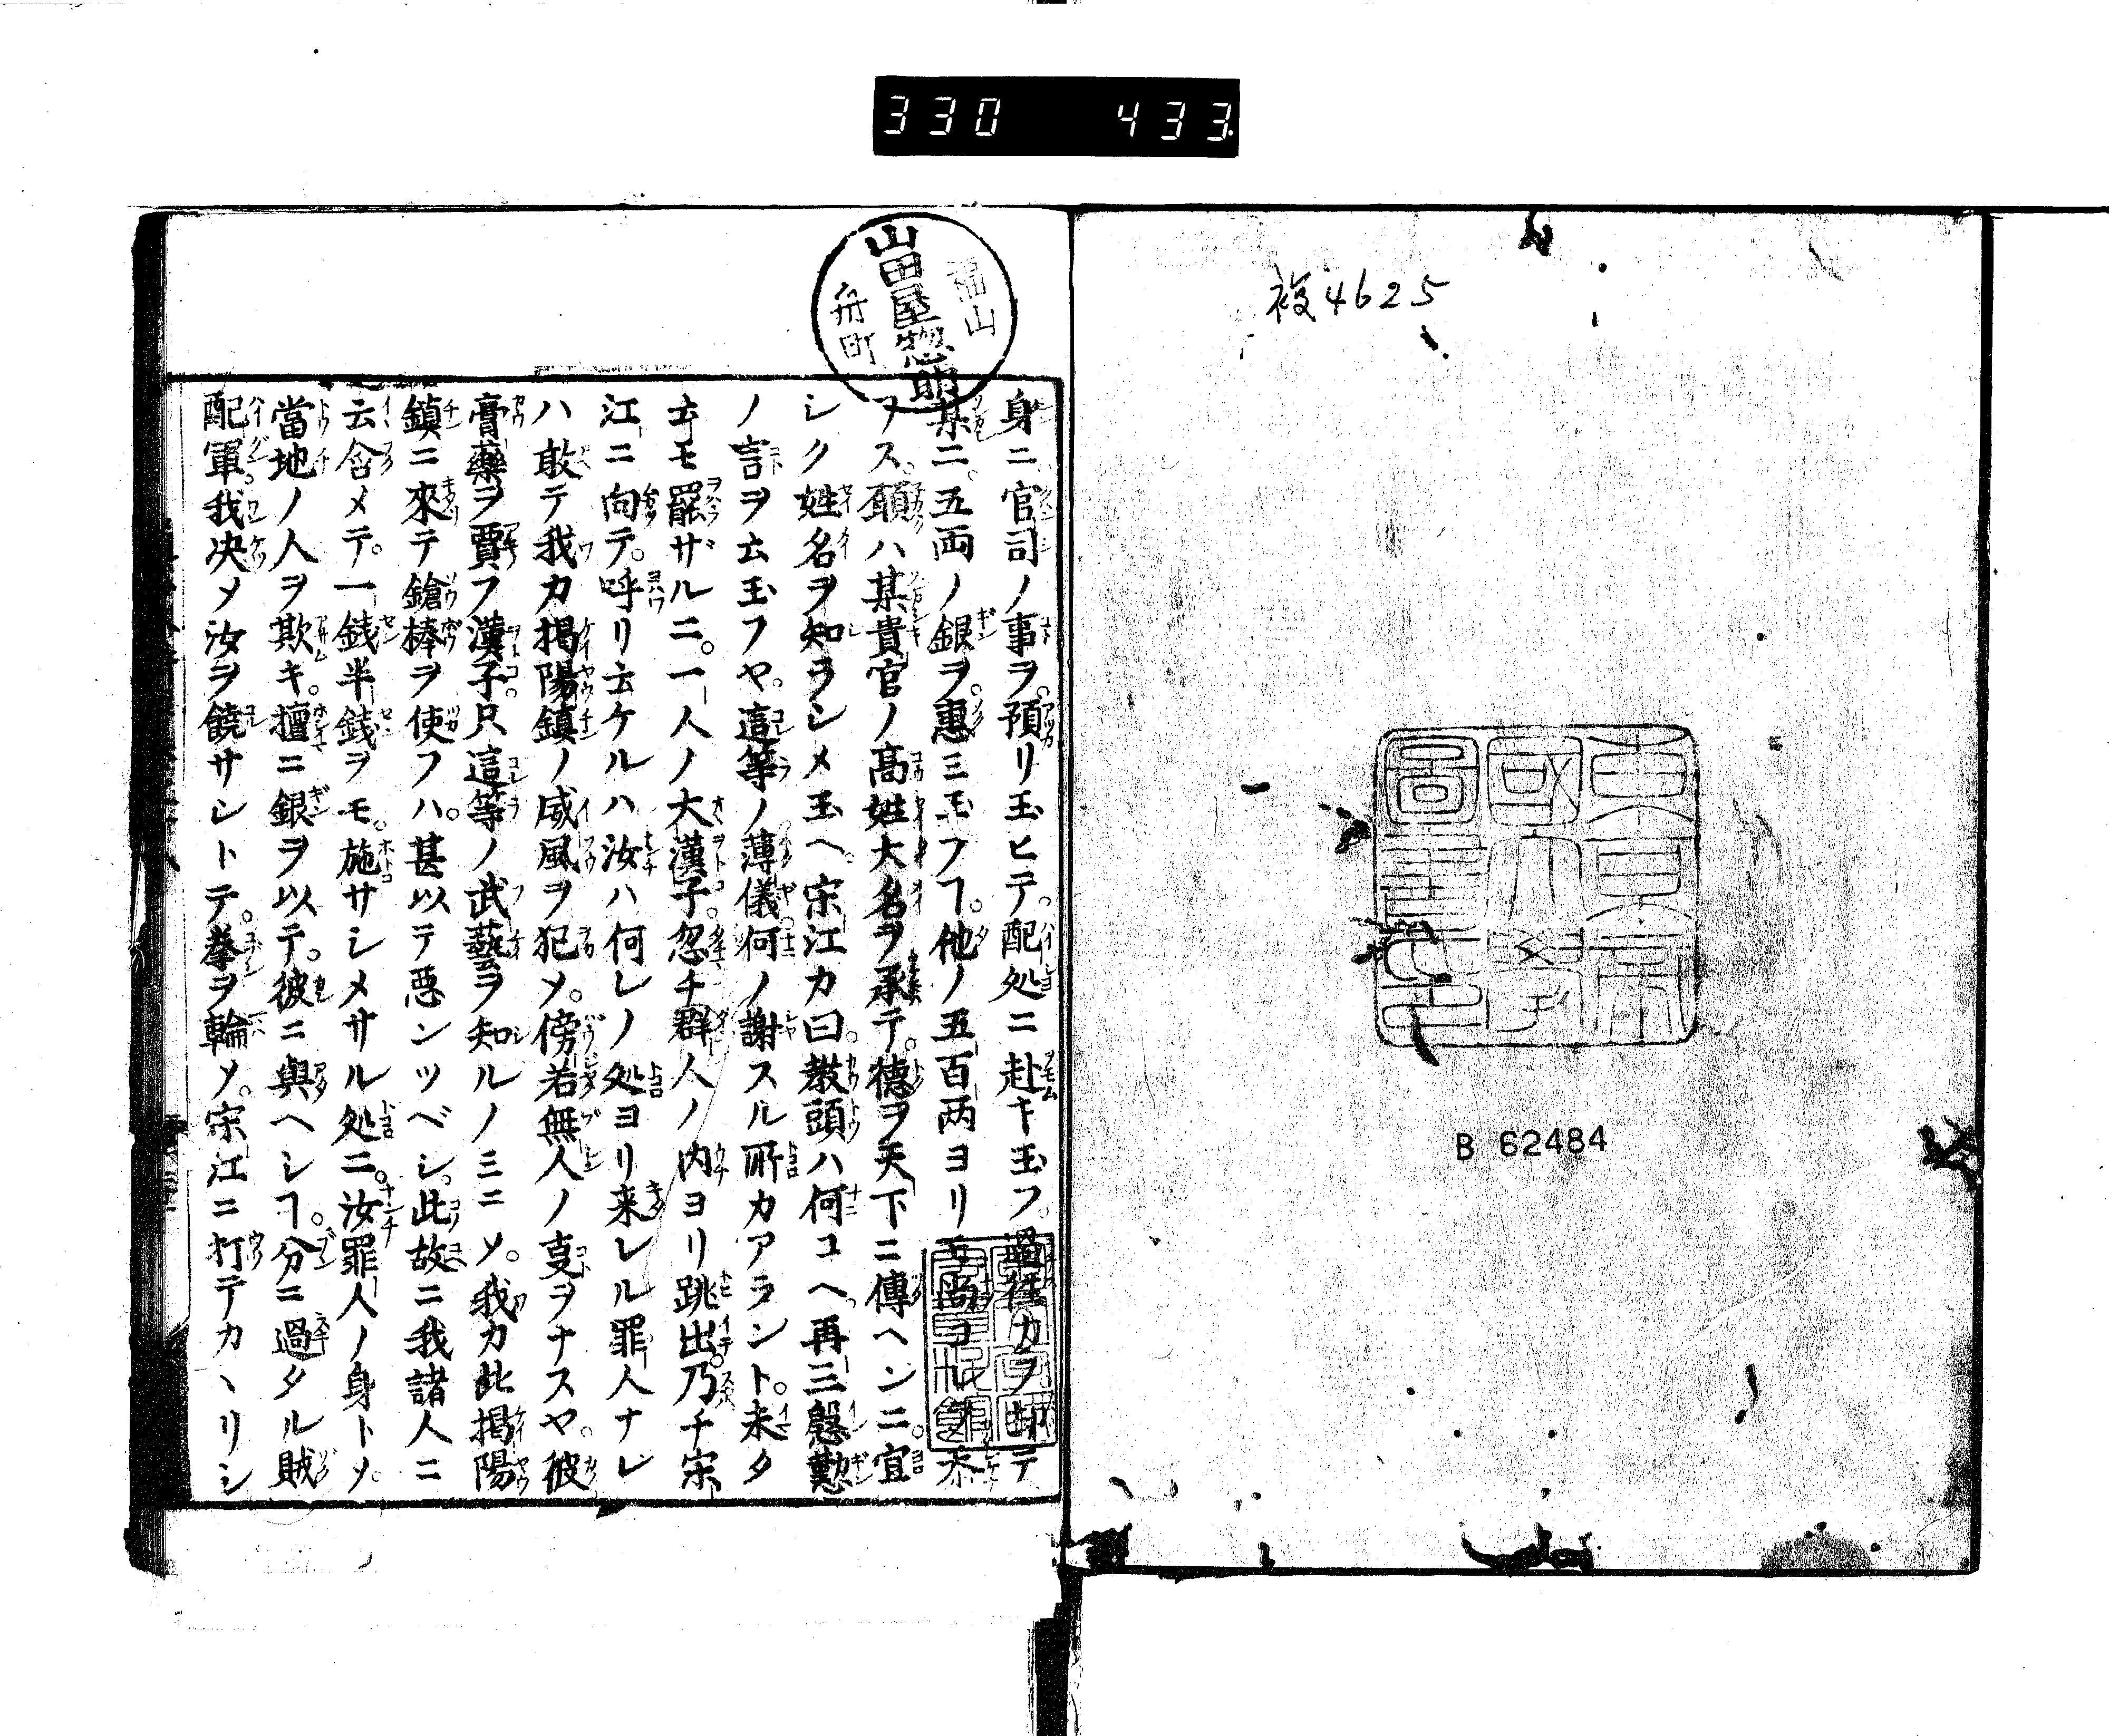 330 433
複4625
東京帝
國大學
圖書之印
B 62484
福山
山田屋惣助
舟町
身ニ官司ノ事ヲ。預リ玉ヒテ。配処ニ赴キ玉フ。過徃カヲ
テ
某ニ。五両ノ銀ヲ。惠ミ玉フヿ。他ノ五百両ヨリモ尚
ヲス。願ハ某貴官ノ高姓大名ヲ承テ。德ヲ天下ニ傳ヘンニ。宜
シク姓名ヲ知ラシメ玉ヘ。宋江カ曰。教頭ハ何ユヘ。再三慇懃
ノ言ヲ云玉フヤ。這等ノ薄儀何ノ謝スル所カアラント。未タ
云モ罷ザルニ。一人ノ大漢子。忽チ群人ノ内ヨリ跳出。乃チ宋
江ニ向テ。呼リ云ケルハ汝ハ何レノ処ヨリ来レル罪人ナレ
ハ敢テ我カ掲陽鎮ノ威風ヲ犯メ。傍若無人ノ㕝ヲナスヤ。彼
膏藥ヲ賣フ漢子。只這等ノ武藝ヲ知ルノミニソ。我カ此掲陽
鎮ニ來テ鎗棒ヲ使フハ。甚以テ悪ンツベシ。此故ニ我諸人ニ
云含メテ。一銭半銭ヲモ。施サシメサル処ニ。汝罪人ノ身トソ。
當地ノ人ヲ欺キ。擅ニ銀ヲ以テ。彼ニ與ヘシヿ。分ニ過タル賊
配軍。我决メ汝ヲ饒サシトテ。拳ヲ輪メ。宋江ニ打テカヽリシ